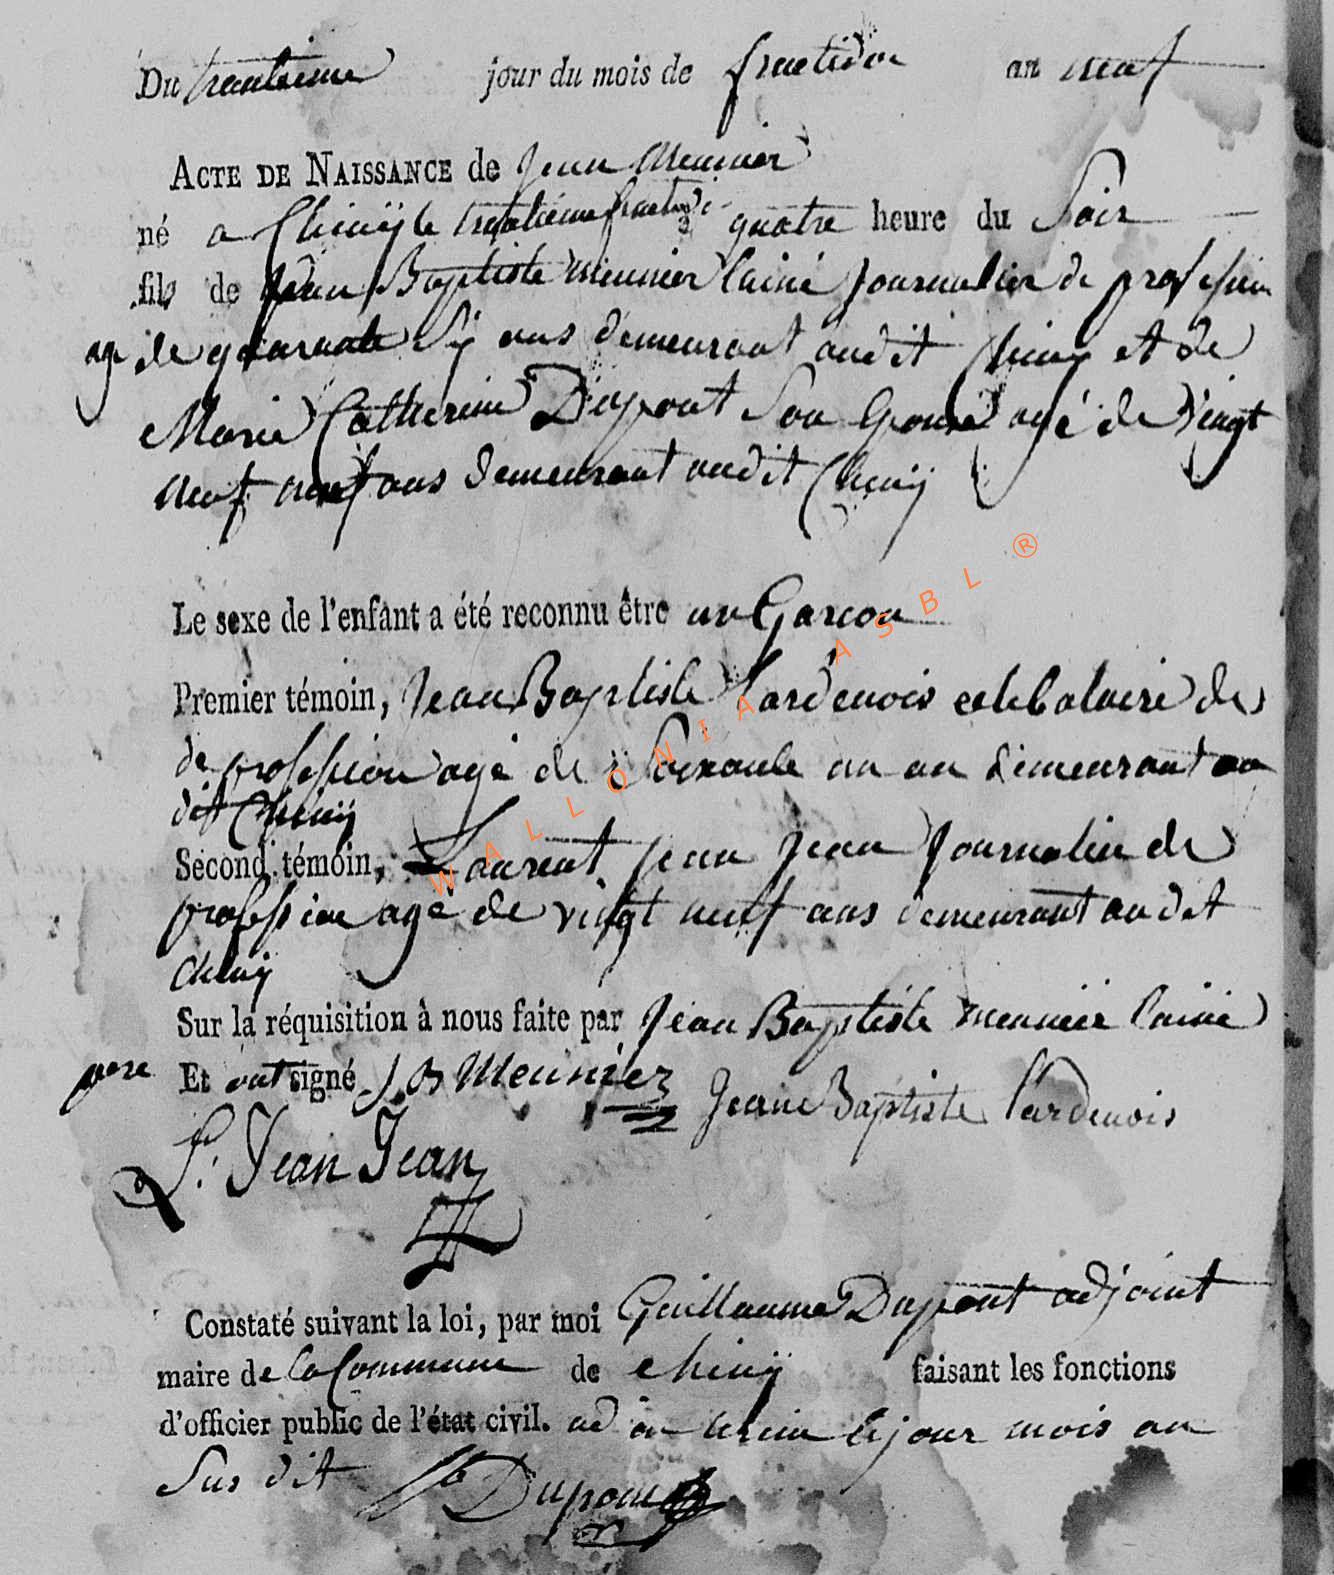 Du trentieme jour du mois de fructidor an neuf
ACTE DE NAISSANCE de Jean Meunier
né a Chiny le trentieme fructidor quatre heure du Soir
fils de Jean Baptiste meunier lainé journalier de profession
agé de quarante Six ans demeurant audit Chiny et de
Marie Catherine Dupont Son Epouse agé de vingt
neuf ans demeurant audit Chiny
Le sexe de l'enfant a été reconnu être un Garcon
Premier témoin, Jean Baptiste Lardenois celebataire de
de profession agé de Soixante un an demeurant au
dit Chiny
Second témoin, Laurent jean Jean journalier de
profession agé de vingt neuf ans demeurant audit
chiny
Sur la réquisition à nous faite par Jean Baptiste meunier lainé
pere Et ont signé J B Meunier Jean Baptiste Lardenois
L. Jean Jean
Constaté suivant la loi, par moi Guillaume Dupont adjoint
maire de la Commune de chiny faisant les fonctions
d'officier public de l'état civil. le jour mois an
Sus dit Dupont
WALLONIA ASBL ®